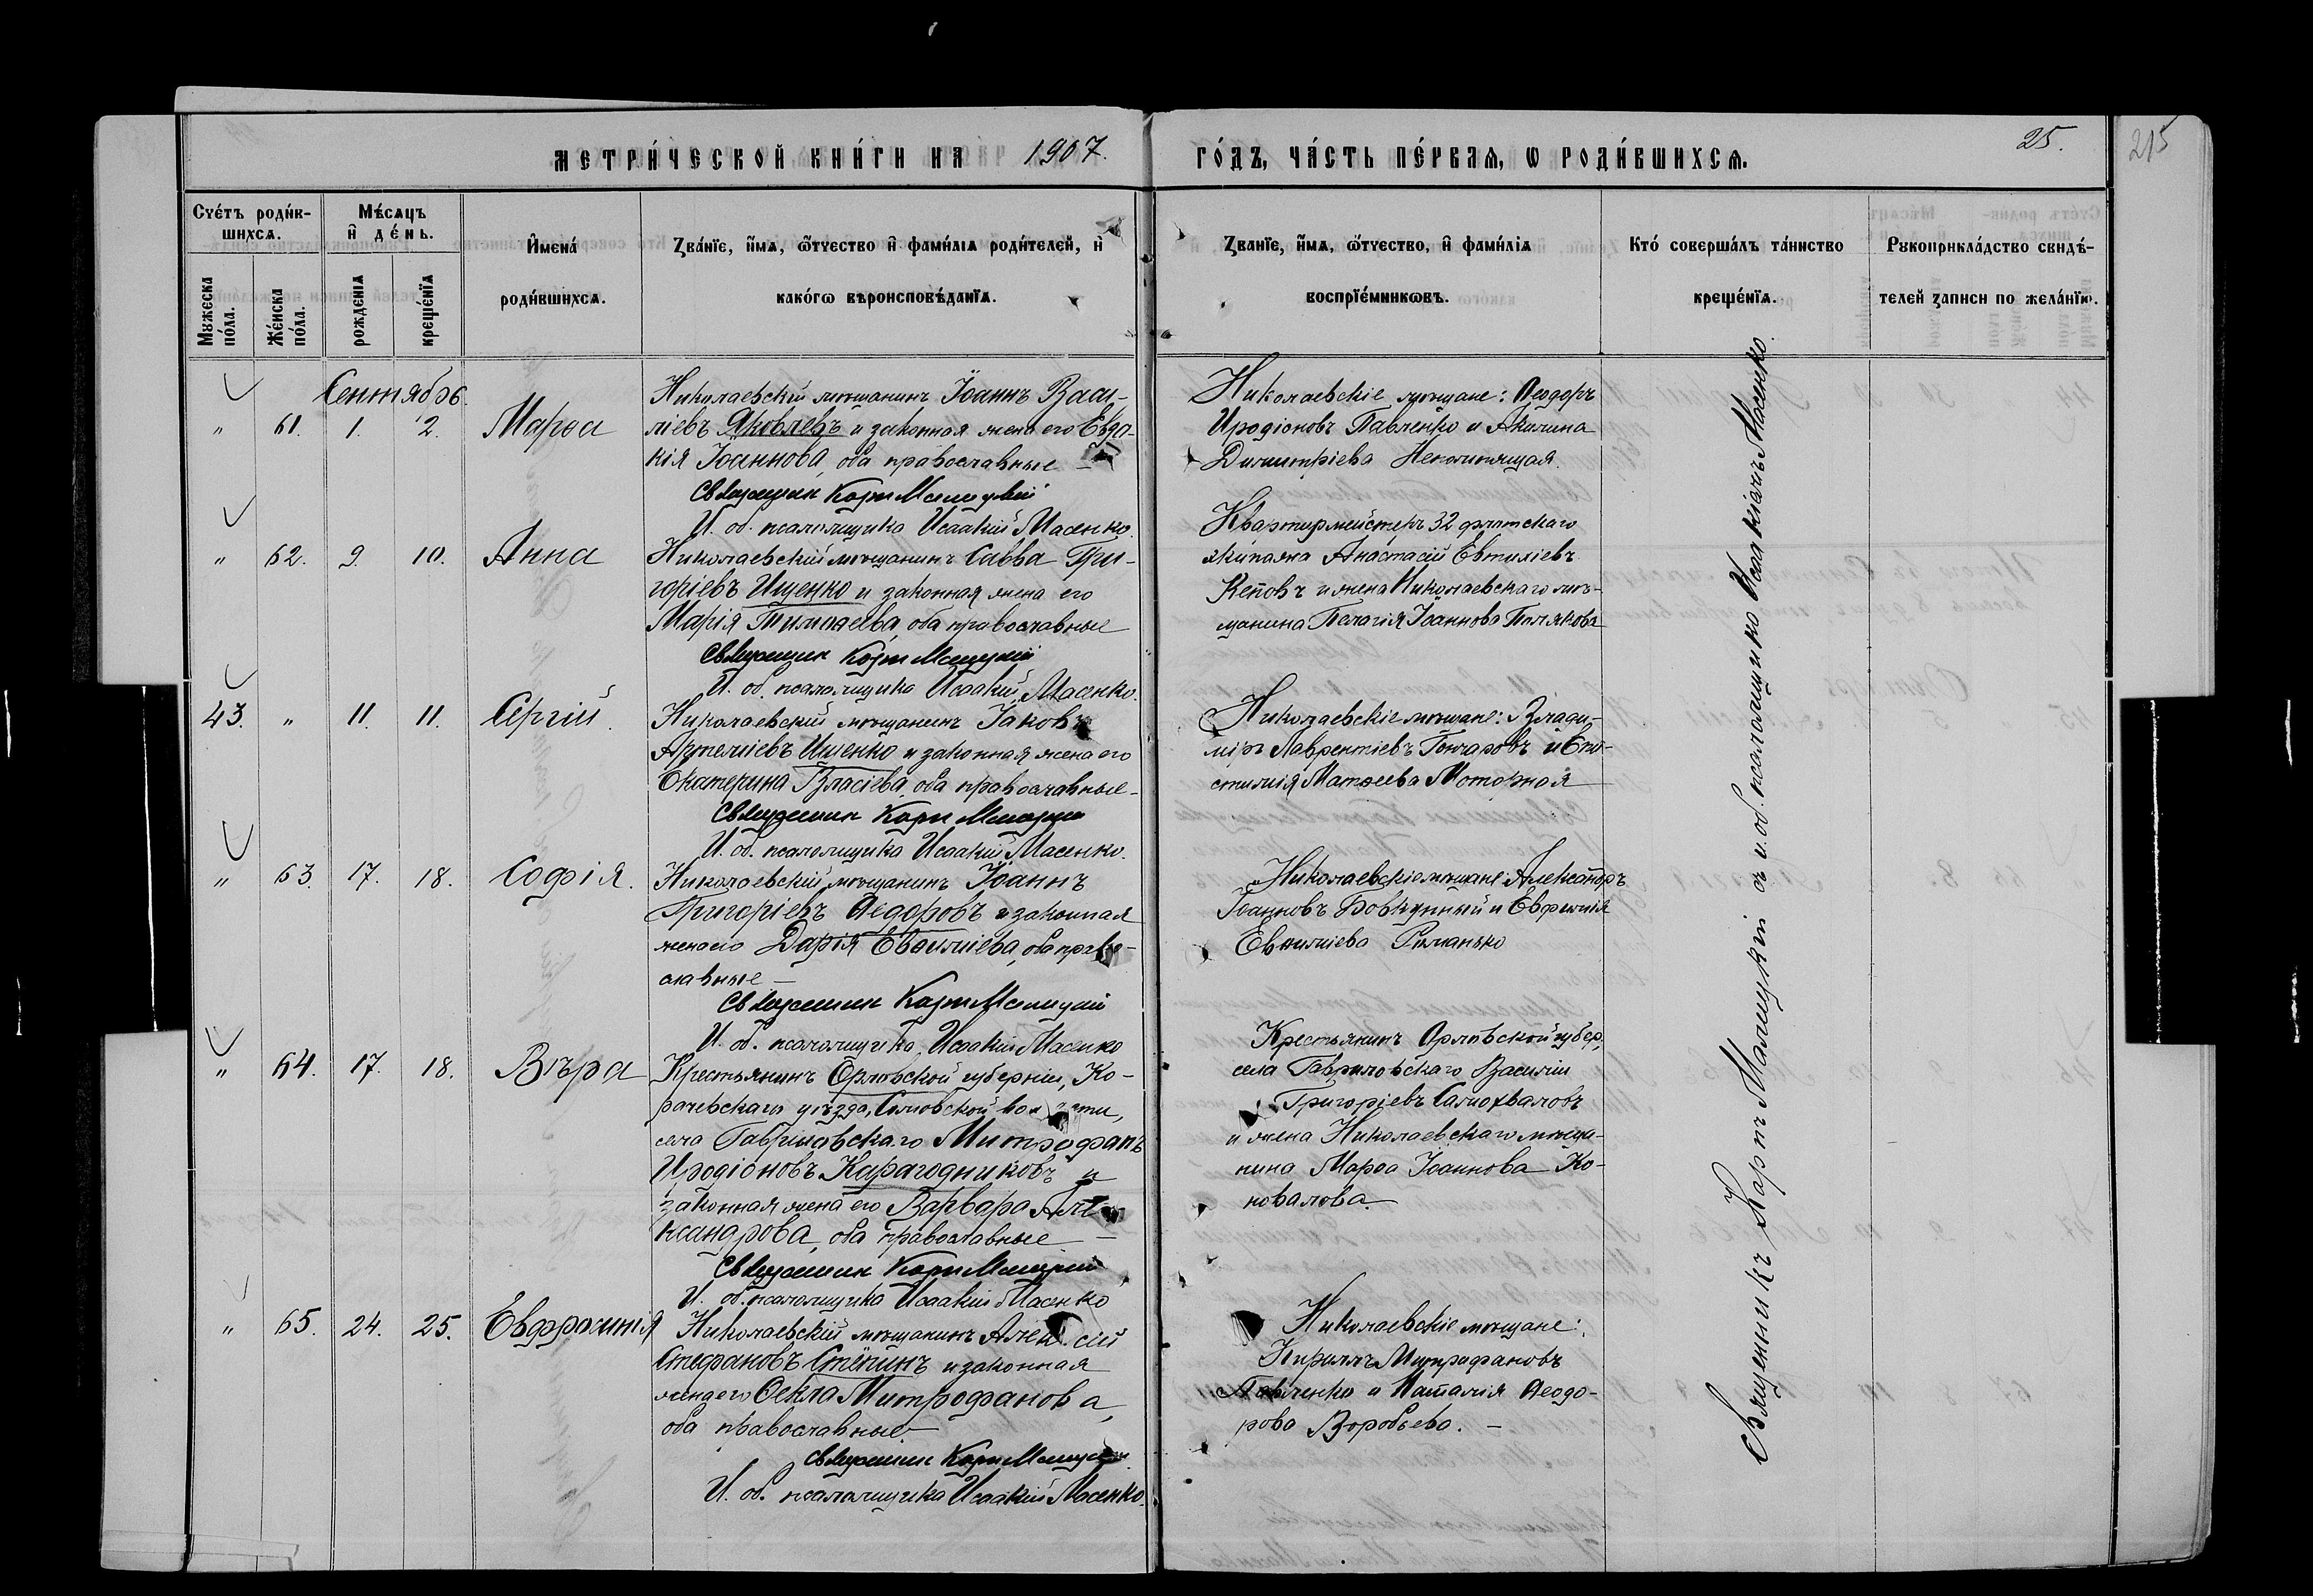 МЕТРИ́ЧЕСКОЙ КНИ́ГИ НА 1907.
ГО́ДЪ, ЧА́СТЬ ПЕ́РВАѦ, Ѡ РОДИ́ВШИХСѦ.
25.
215
Сче́тъ роди́в-
шихсѧ.
Мꙋжеска по́ла.
Же́нска по́ла.
Мѣ́сѧцъ
и҆ де́нь.
рожденїѧ
креще́нїѧ
И҆мена́
роди́вшихсѧ.
Зва́нїе, и҆́мѧ, ѻ҆́тчество и҆ фами́лїѧ роди́телей, и҆
како́гѡ вѣроисповѣ́данїѧ.
Зва́нїе, и҆́мѧ, ѻ҆́тчество, и҆ фами́лїѧ
воспрїе́мникѡвъ.
Кто́ соверша́лъ та́инство
креще́нїѧ.
Рꙋкоприкла́дство свидѣ́-
телей записи по жела́нїю.
Сентябрь
" 61. 1. 2. Марѳа
Николаевскій мѣщанинъ Іоаннъ Васи-
ліевъ Яковлевъ и законная жена его Евдо-
кія Іоаннова, оба православные
Священникъ Карпъ Малицкій
И. об. псаломщика Исаакій Масенко.
Николаевскіе мѣщане: Ѳеодоръ
Иродіоновъ Павленко и Акилина
Димитріева
" 62. 9. 10. Анна
Николаевскій мѣщанинъ Савва Гри-
горіевъ Ищенко и законная жена его
Марія Тимоѳеева, оба православные
Священникъ Карпъ Малицкій
И. об. псаломщика Исаакій Масенко.
Квартирмейстеръ 32 флотскаго
экипажа Анастасій Евтихіевъ
и жена Николаевскаго мѣ-
щанина Пелагія Іоаннова Полякова
43. " 11. 11. Сергій.
Николаевскій мѣщанинъ Іаковъ
Артеміевъ Ищенко и законная жена его
Екатерина Власіева, оба православные
Священникъ Карпъ Малицкій
И. об. псаломщика Исаакій Масенко.
Николаевскіе мѣщане: Влади-
міръ Лаврентіевъ Гончаровъ и Епи-
стимія Матѳеева Моторная
" 63. 17. 18. Софія.
Николаевскій мѣщанинъ Іоаннъ
Григоріевъ Ѳедоровъ и законная
жена его Дарія Евѳиміева, оба право-
славные
Священникъ Карпъ Малицкій
И. об. псаломщика Исаакій Масенко
Николаевскіе мѣщане: Александръ
Іоанновъ Бовкунный и Евфимія
Евѳиміева Романько
" 64. 17. 18. Вѣра
Крестьянинъ Орловской губерніи, Ка-
рачевскаго уѣзда, волости,
села Гавриловскаго Митрофанъ
Иродіоновъ Карагодниковъ и
законная жена его Варвара Але-
ксандрова, оба православные
Священникъ Карпъ Малицкій
И. об. псаломщика Исаакій Масенко
Крестьянинъ Орловской губер.,
села Гавриловскаго Василій
Григоріевъ Самохваловъ
и жена Николаевскаго мѣща-
нина Марѳа Іоаннова Ко-
новалова.
" 65. 24. 25. Евфросинія
Николаевскій мѣщанинъ Алексій
Стефановъ Стёпинъ и законная
жена его Ѳекла Митрофанова,
оба православные
Священникъ Карпъ Малицкій
И. об. псаломщика Исаакій Масенко.
Николаевскіе мѣщане:
Кириллъ Митрофановъ
Павленко и Наталія Ѳеодо-
рова Воробьева.
Священникъ Карпъ Малицкій съ и. об. псаломщика Исаакіемъ Масенко.